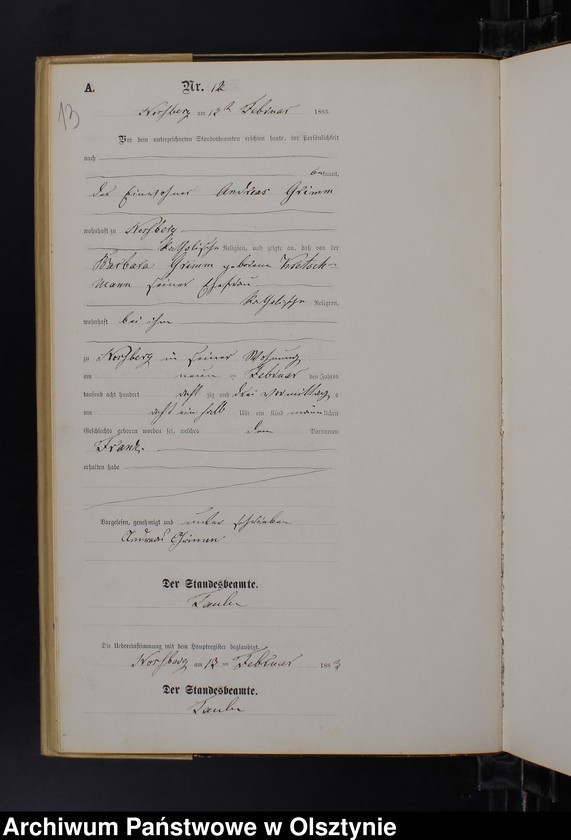 A.
Nr. 12
13
am 12t Februar 1883.
Vor dem unterzeichneten Standesbeamten erschien heute, der Persönlichkeit
nach
bekannt,
der Einwohner Andreas Grimm
wohnhaft zu
katholischer Religion, und zeigte an, daß von der
Barbara Grimm geborene Kretsch-
mann seiner Ehefrau
katholischer Religion,
wohnhaft bei ihm
zu in seiner Wohnung
am neun ten Februar des Jahres
tausend acht hundert acht zig und drei Vormittags
um acht ein halb Uhr ein Kind männlichen
Geschlechts geboren worden sei, welches den Vornamen
Frank
erhalten habe
Vorgelesen, genehmigt und unterschrieben
Andreas Grimm
Der Standesbeamte.
Die Uebereinstimmung mit dem Hauptregister beglaubigt.
am 12 ten Februar 1883
Der Standesbeamte.
Archiwum Państwowe w Olsztynie